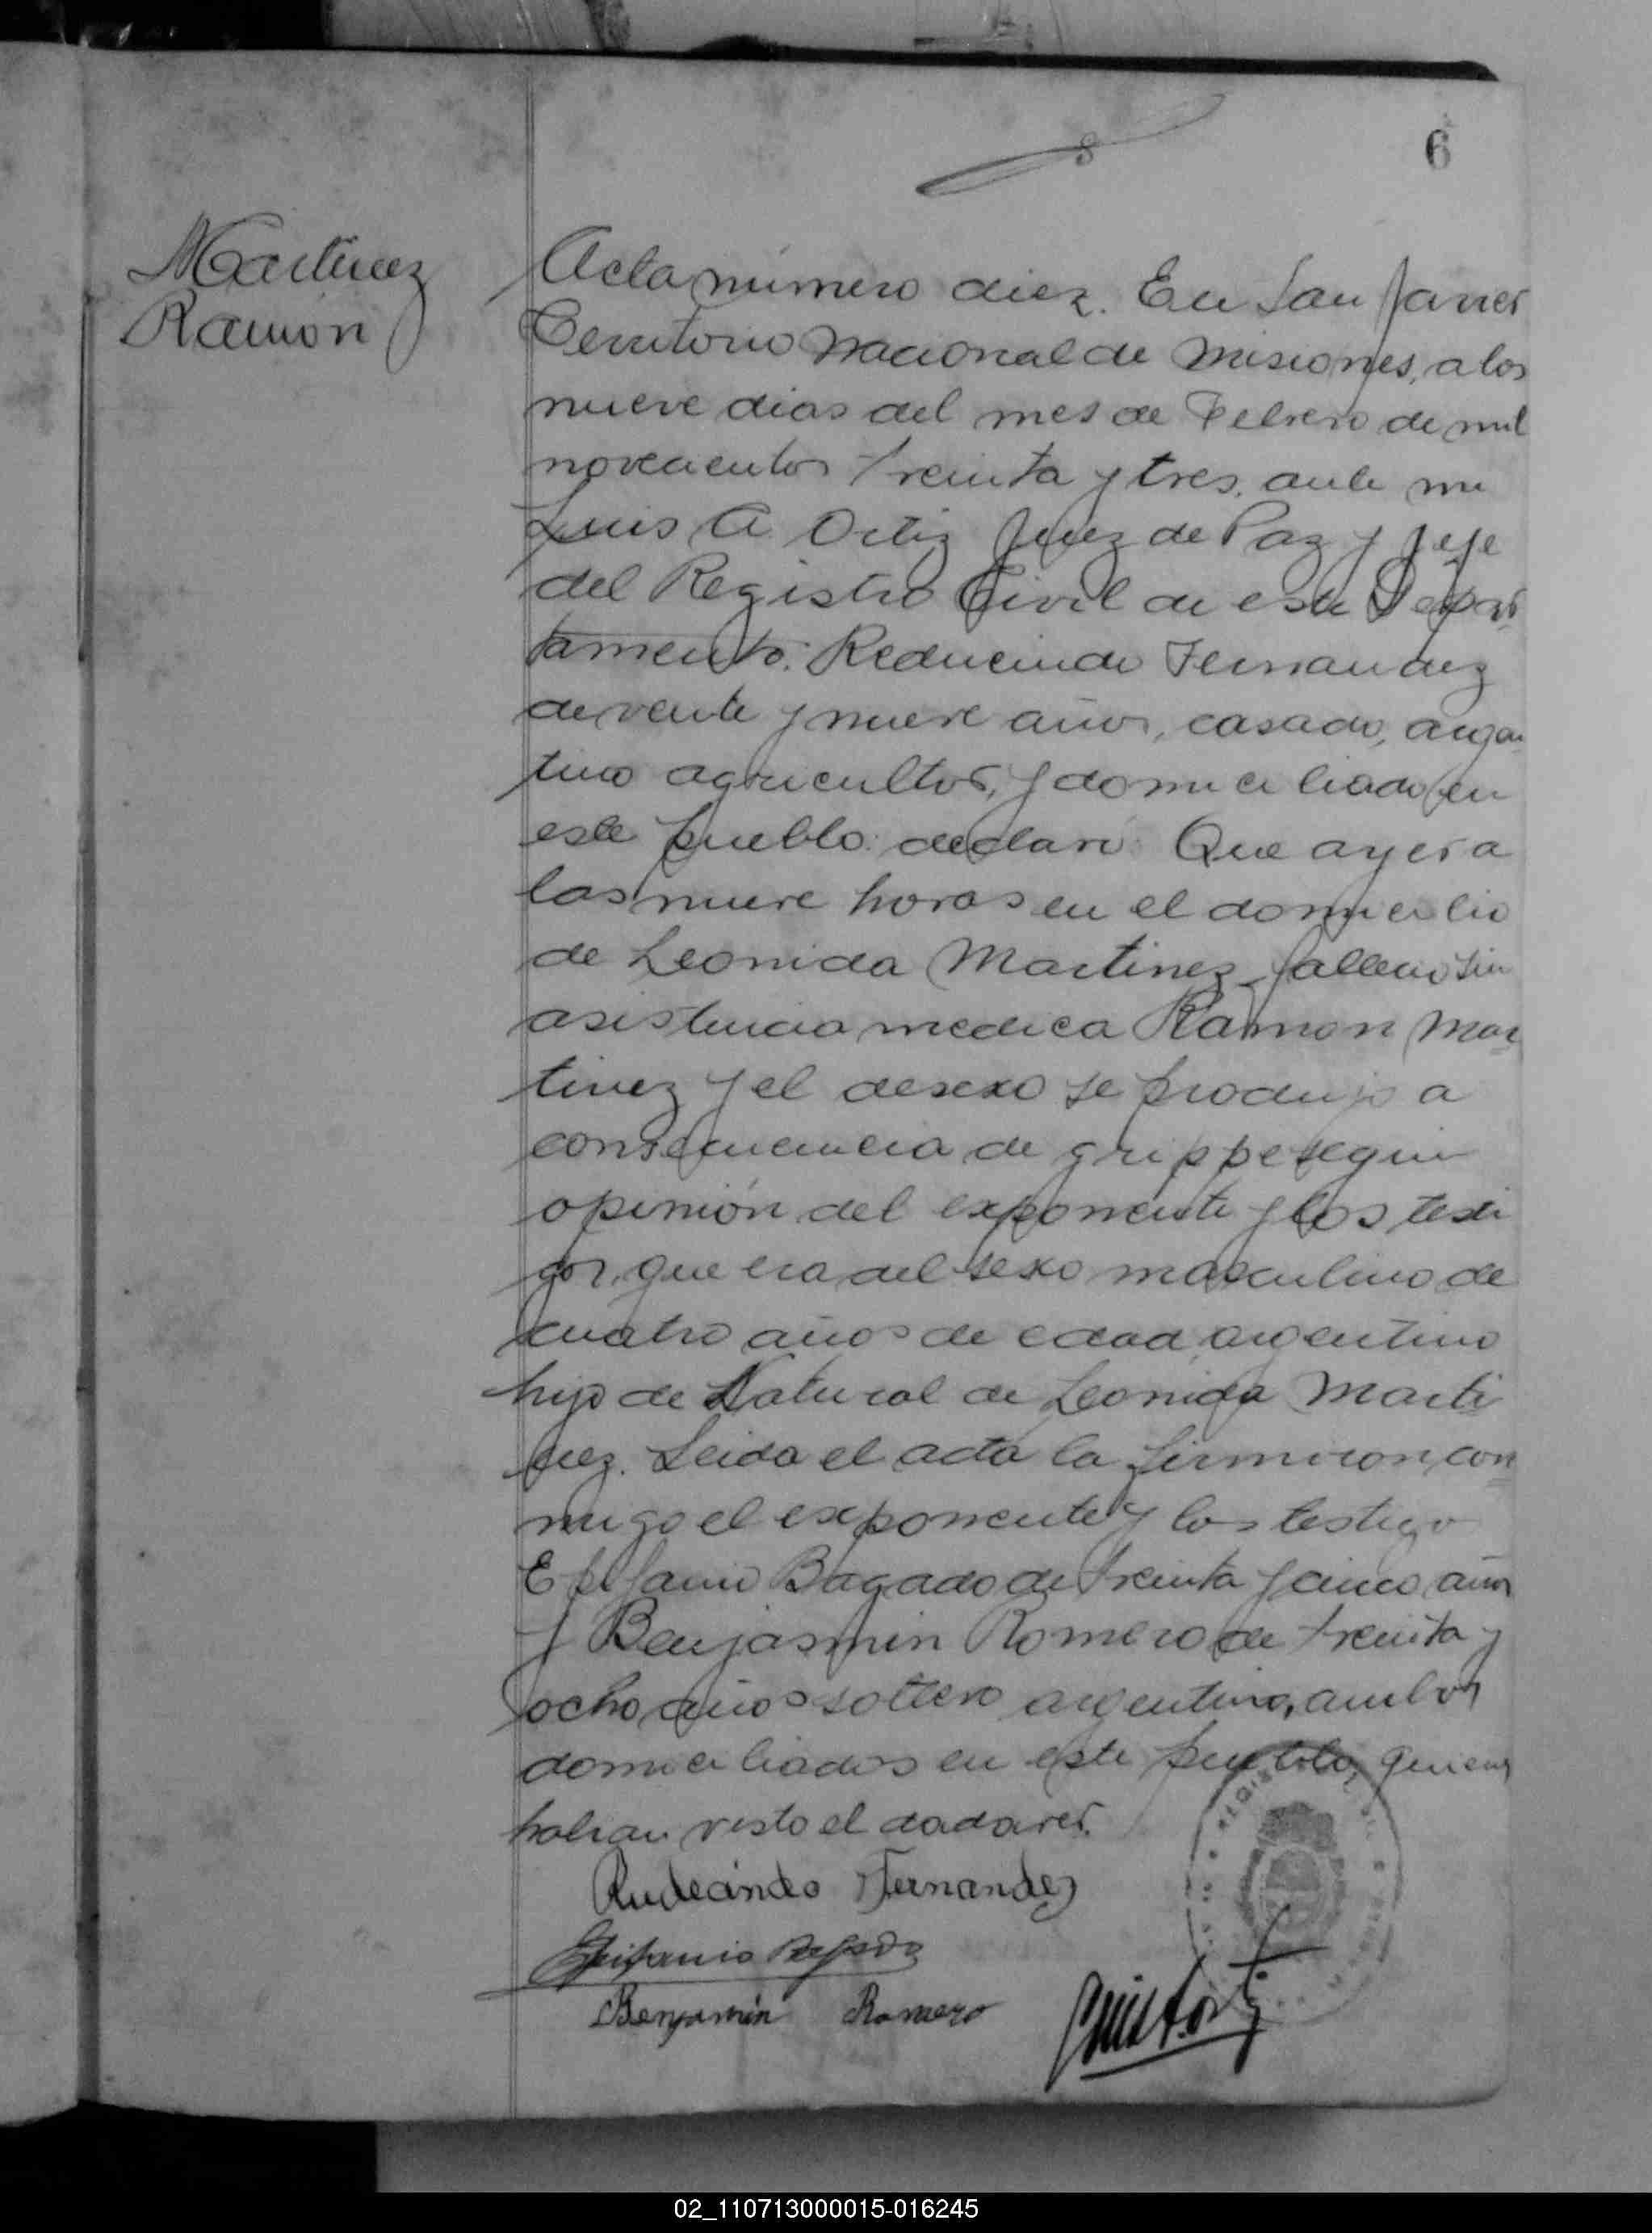 6
8
Martinez
Ramón
Acta número diez. En San Javier
Territorio Nacional de Misiones, a los
nueve dias del mes de Febrero de mil
novecientos treinta y tres, ante mi
Luis A. Ortiz Juez de Paz y Jefe
del Registro Civil de este Depar
tamento: Reducindo Fernandez
de veinte y nueve años, casado, argen
tino agricultor, y domiciliado en
este pueblo: declaró: Que ayer a
las nueve horas en el domicilio
de Leonida Martinez fallecio sin
asistencia medica Ramon Mar
tinez y el desexo se produjo a
consecuencia de grippe segun
opinión del exponente y los testi
gos, que era del sexo masculino de
cuatro años de edad, argentino
hijo de Natural de Leonida Marti
nez. Leida el acta la firmaron con
migo el exponente y los testigo
Epifanio Bagado de treinta y cinco años
y Benjasmin Romero de treinta y
ocho años soltero argentino, ambos
domiciliados en este pueblo, quienes
habian visto el cadaver.
Rudecindo Fernandez
Epifanio
Benjamin Romero
Luis A. Ortiz
02_110713000015-016245